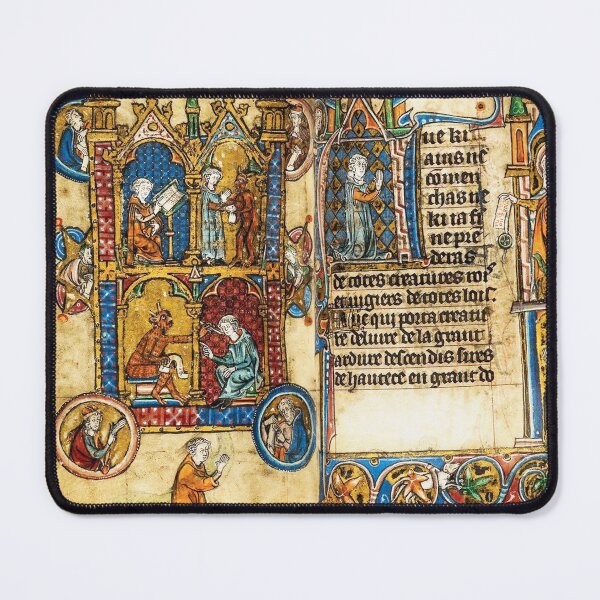 ue ki
ains ne
comen
chas ne
ki ia fi
ne pre
deras
de totes creatures roi
et augiers de totes lois
qui porta
re deliure de la grant
ardure descendis sires
de hautece en grant do